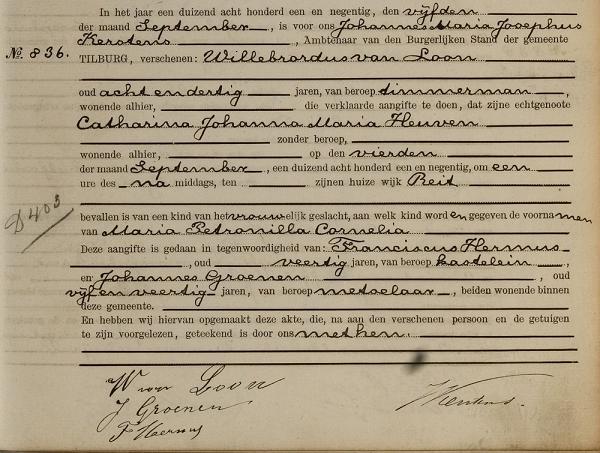 In het jaar een duizend acht honderd een en negentig, den vijfden
der maand September, is voor ons Johannes Maria Josephus
Kerstens, Ambtenaar van den Burgerlijken Stand der gemeente
No. 836.
TILBURG, verschenen: Willebrordus van Loon
oud acht en dertig jaren, van beroep timmerman,
wonende alhier, die verklaarde aangifte te doen, dat zijne echtgenoote
Catharina Johanna Maria Heuven
zonder beroep,
wonende alhier, op den vierden
der maand September, een duizend acht honderd een en negentig, om een
ure des na middags, ten zijnen huize wijk Reit
D 403
bevallen is van een kind van het vrouwelijk geslacht, aan welk kind worden gegeven de voornamen
van Maria Petronilla Cornelia
Deze aangifte is gedaan in tegenwoordigheid van: Franciscus Hermus
, oud veertig jaren, van beroep kastelein,
en Johannes Groenen, oud
vijf en veertig jaren, van beroep metselaar, beiden wonende binnen
deze gemeente.
En hebben wij hiervan opgemaakt deze akte, die, na aan den verschenen persoon en de getuigen
te zijn voorgelezen, geteekend is door ons met hen.
W van Loon
J Groenen
F Hermus